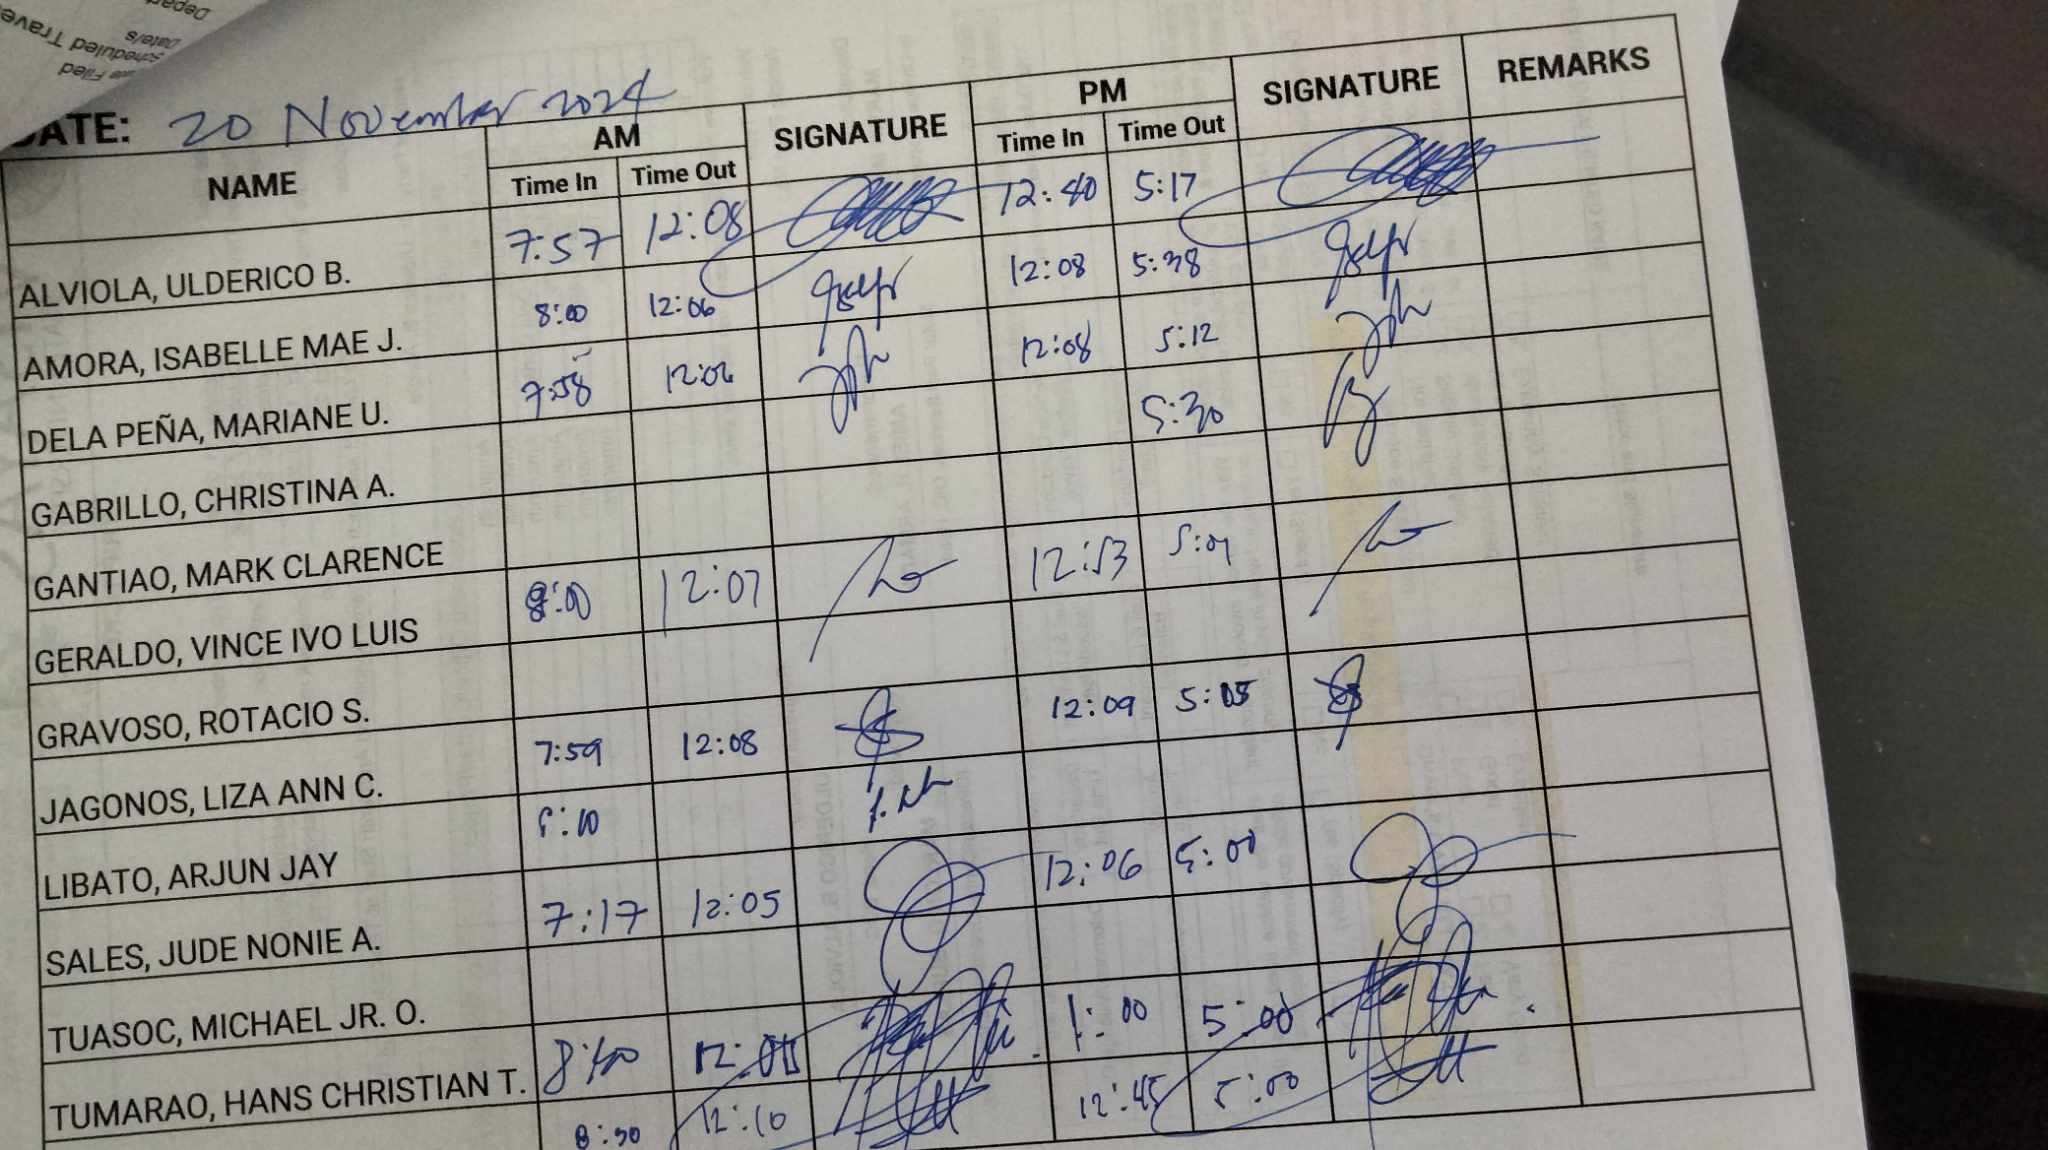 Depar
Date/s
Scheduled Trave
Filed
DATE: 20 November 2024
NAME AM SIGNATURE PM SIGNATURE REMARKS
Time In Time Out Time In Time Out
ALVIOLA, ULDERICO B. 7:57 12:08 12:40 5:17
AMORA, ISABELLE MAE J. 8:00 12:06 12:08 5:38
DELA PEÑA, MARIANE U. 7:58 12:06 12:08 5:12
GABRILLO, CHRISTINA A. 5:30
GANTIAO, MARK CLARENCE
GERALDO, VINCE IVO LUIS 8:00 12:07 12:53 5:01
GRAVOSO, ROTACIO S.
JAGONOS, LIZA ANN C. 7:59 12:08 12:09 5:05
LIBATO, ARJUN JAY 8:10
SALES, JUDE NONIE A. 7:17 12:05 12:06 5:00
TUASOC, MICHAEL JR. O.
TUMARAO, HANS CHRISTIAN T. 8:40 1:00 5:00
8:30 12:10 12:45 5:00